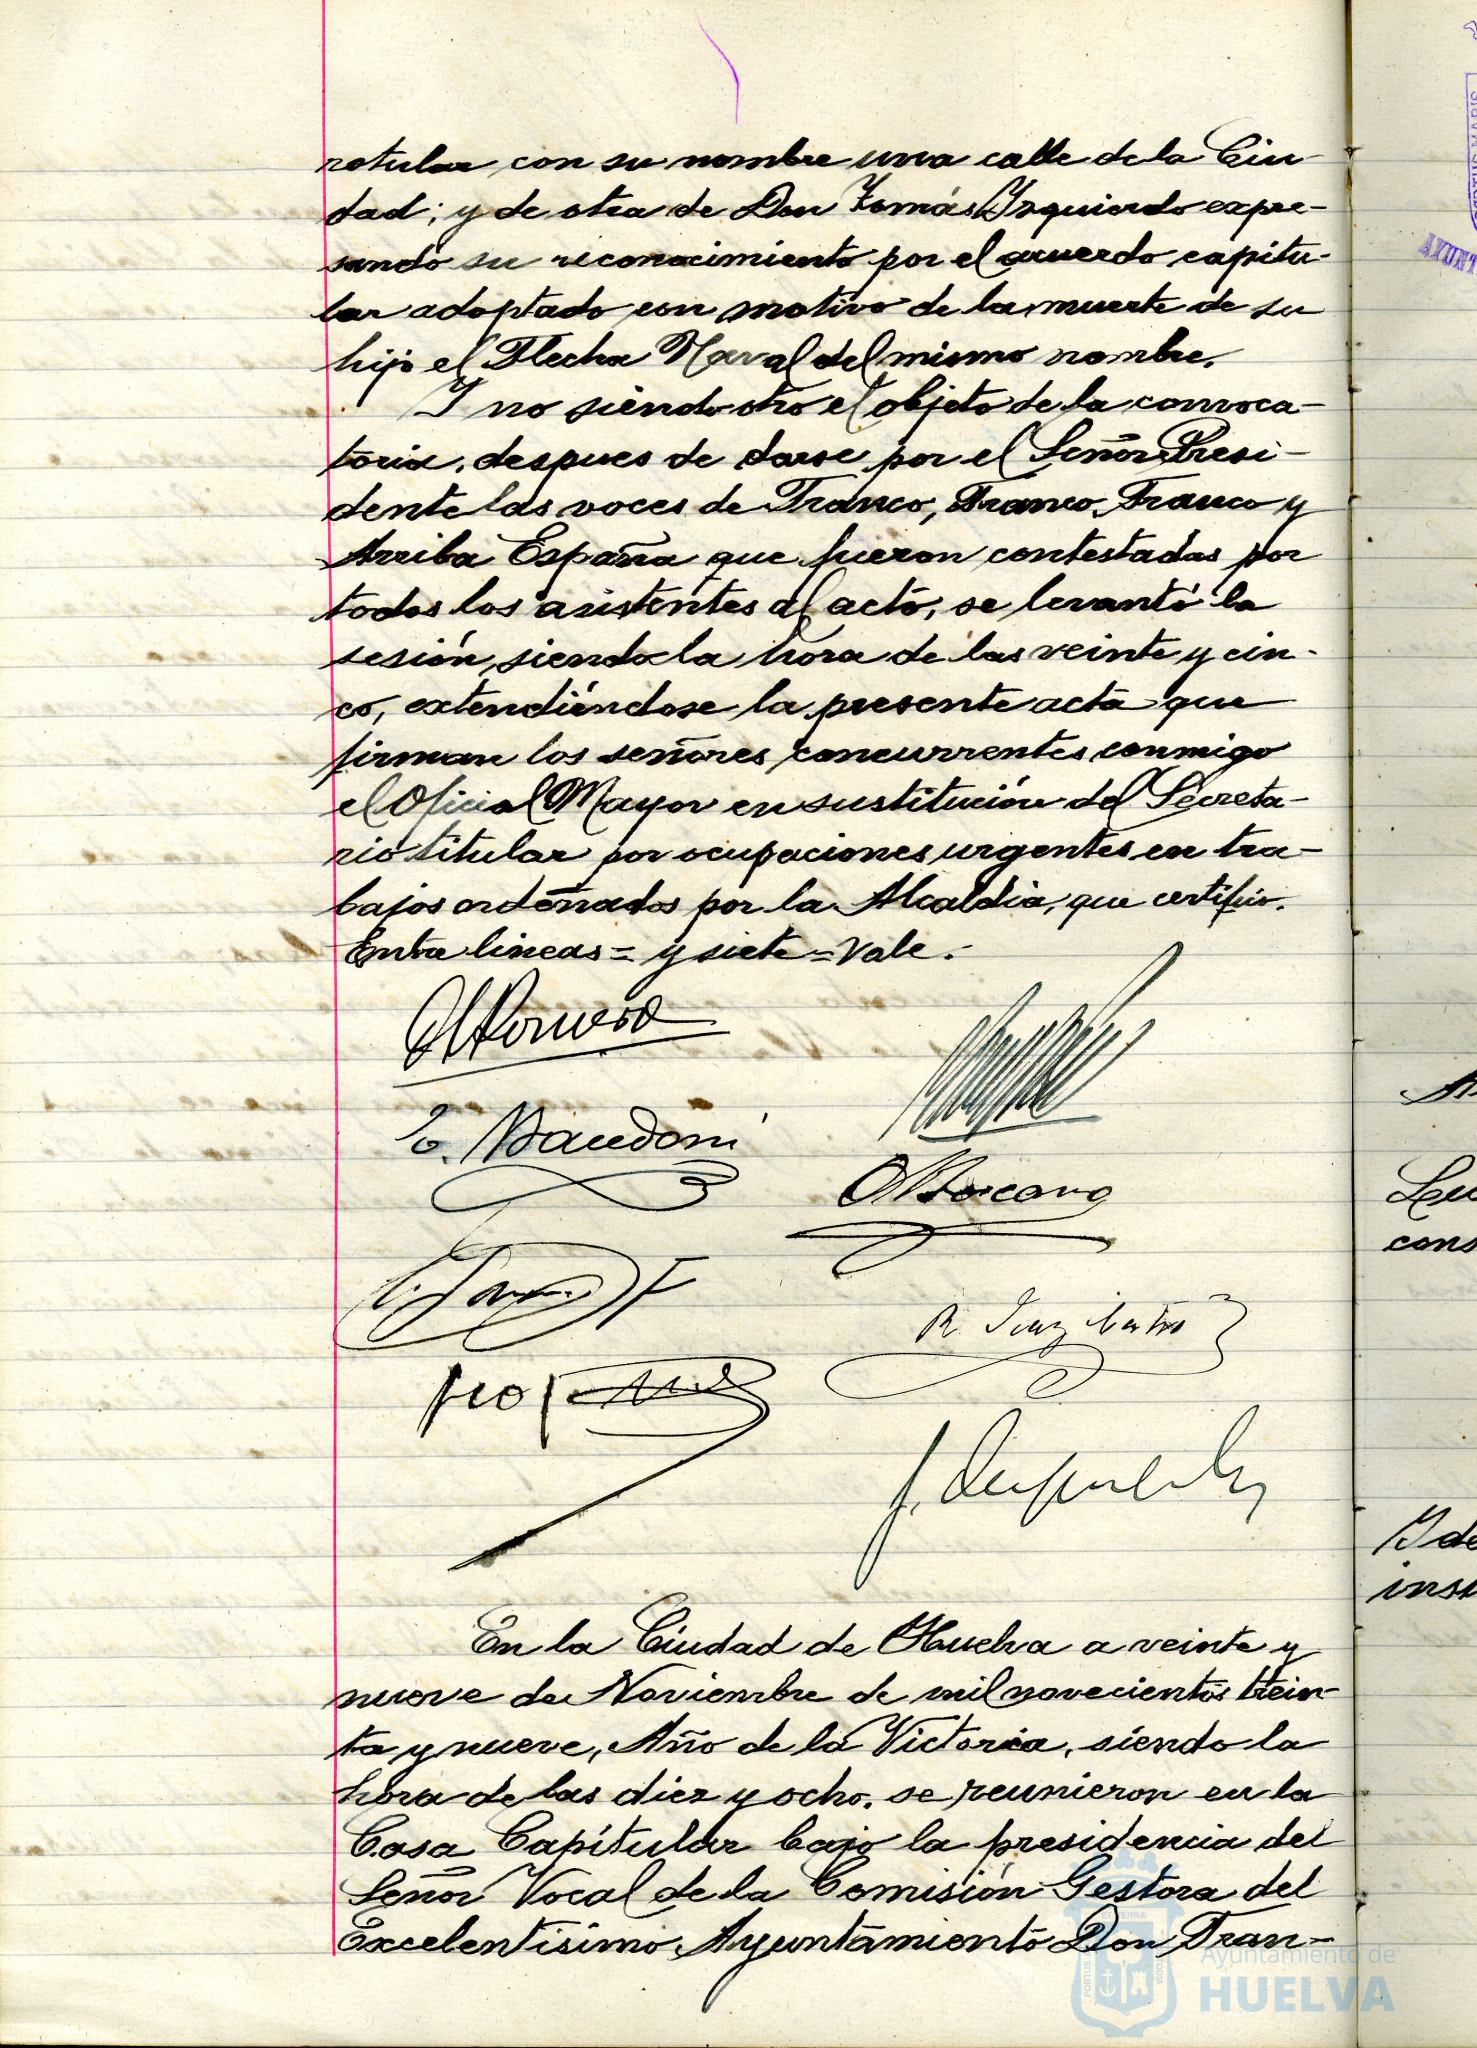 rotular con su nombre una calle de la Ciu-
dad; y de otra de Don Tomás Izquierdo expre-
sando su reconocimiento por el acuerdo capitu-
lar adoptado con motivo de la muerte de su
hijo el Flecha Naval del mismo nombre.
Y no siendo otro el objeto de la convoca-
toria, despues de darse por el Señor Presi-
dente las voces de Franco, Franco, Franco y
Arriba España que fueron contestadas por
todos los asistentes al acto, se levantó la
sesión, siendo la hora de las veinte y cin-
co, extendiéndose la presente acta que
firman los señores concurrentes conmigo
el Oficial Mayor en sustitución del Secreta-
rio titular por ocupaciones urgentes en tra-
bajos ordenados por la Alcaldia, que certifico.
Entre lineas = y siete = Vale.
En la Ciudad de Huelva a veinte y
nueve de Noviembre de mil novecientos trein-
ta y nueve, Año de la Victoria, siendo la
hora de las diez y ocho, se reunieron en la
Casa Capitular bajo la presidencia del
Señor Vocal de la Comisión Gestora del
Excelentísimo Ayuntamiento Don Fran-
Ayuntamiento de
HUELVA